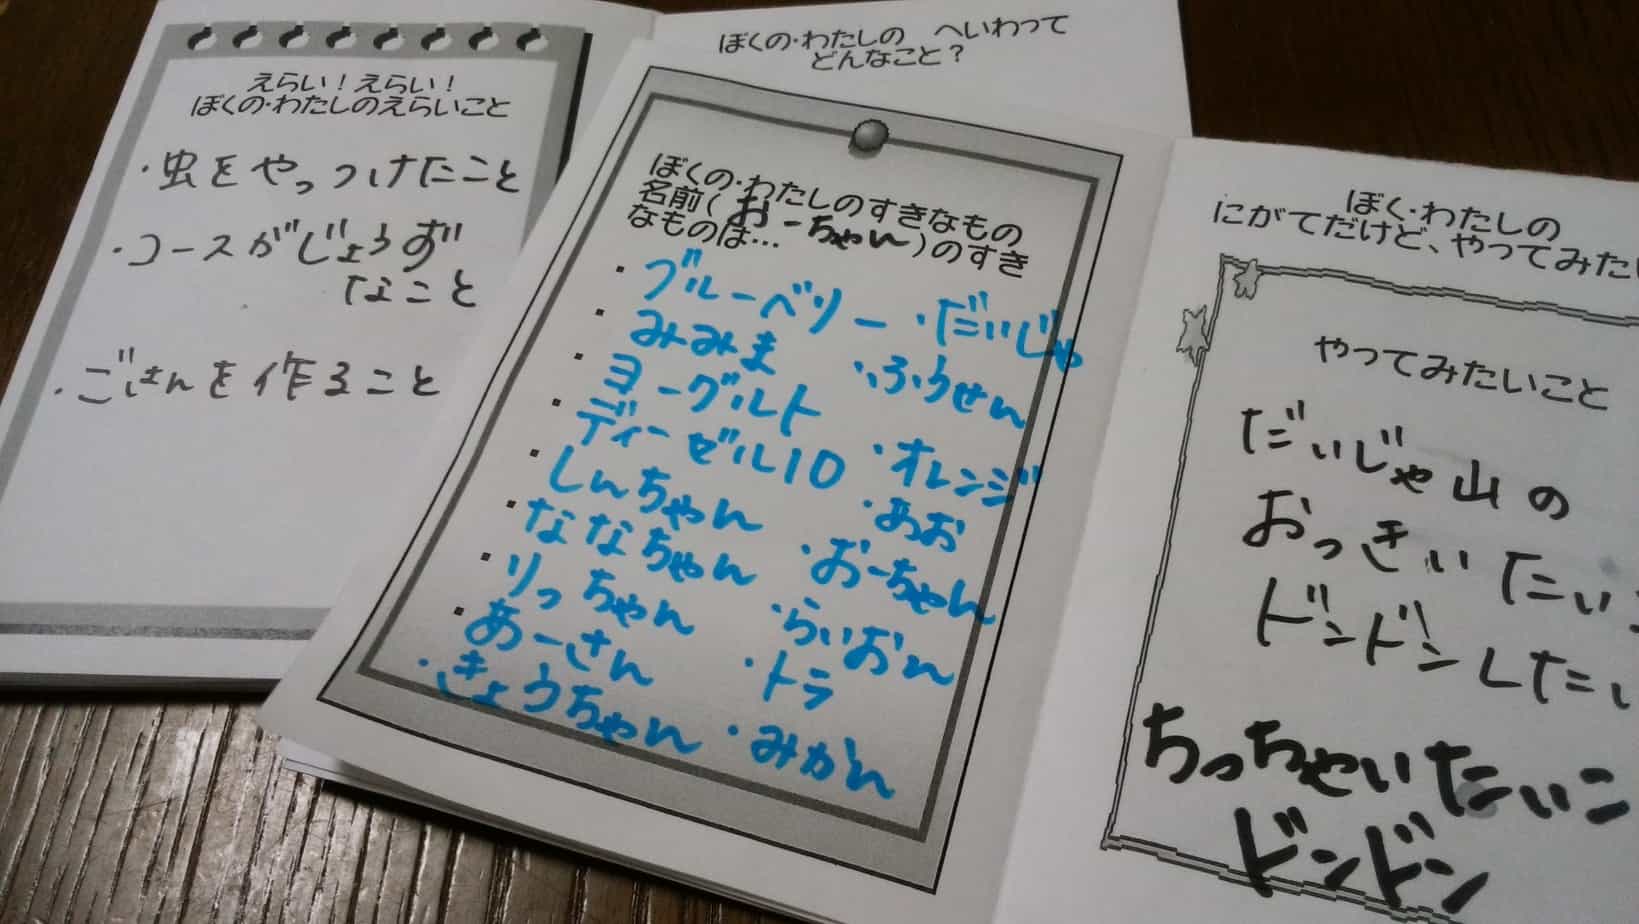 えらい！えらい！
ぼくの・わたしのえらいこと
・虫をやっつけたこと
・コースがじょうず
なこと
・ごはんを作ること
ぼくの・わたしの へいわって
どんなこと？
ぼくの・わたしのすきなもの
名前（おーちゃん）のすき
なものは…
・ブルーベリー ・だいじゃ
・みみま ・ふうせん
・ヨーグルト
・ディーゼル10 ・オレンジ
・しんちゃん ・あお
・ななちゃん ・おーちゃん
・りっちゃん ・らいおん
・あーさん ・トラ
・きょうちゃん ・みかん
ぼく・わたしの
にがてだけど、やってみたい
やってみたいこと
だいじゃ山の
おっきいたいこ
ドンドンしたい
ちっちゃいたいこ
ドンドン